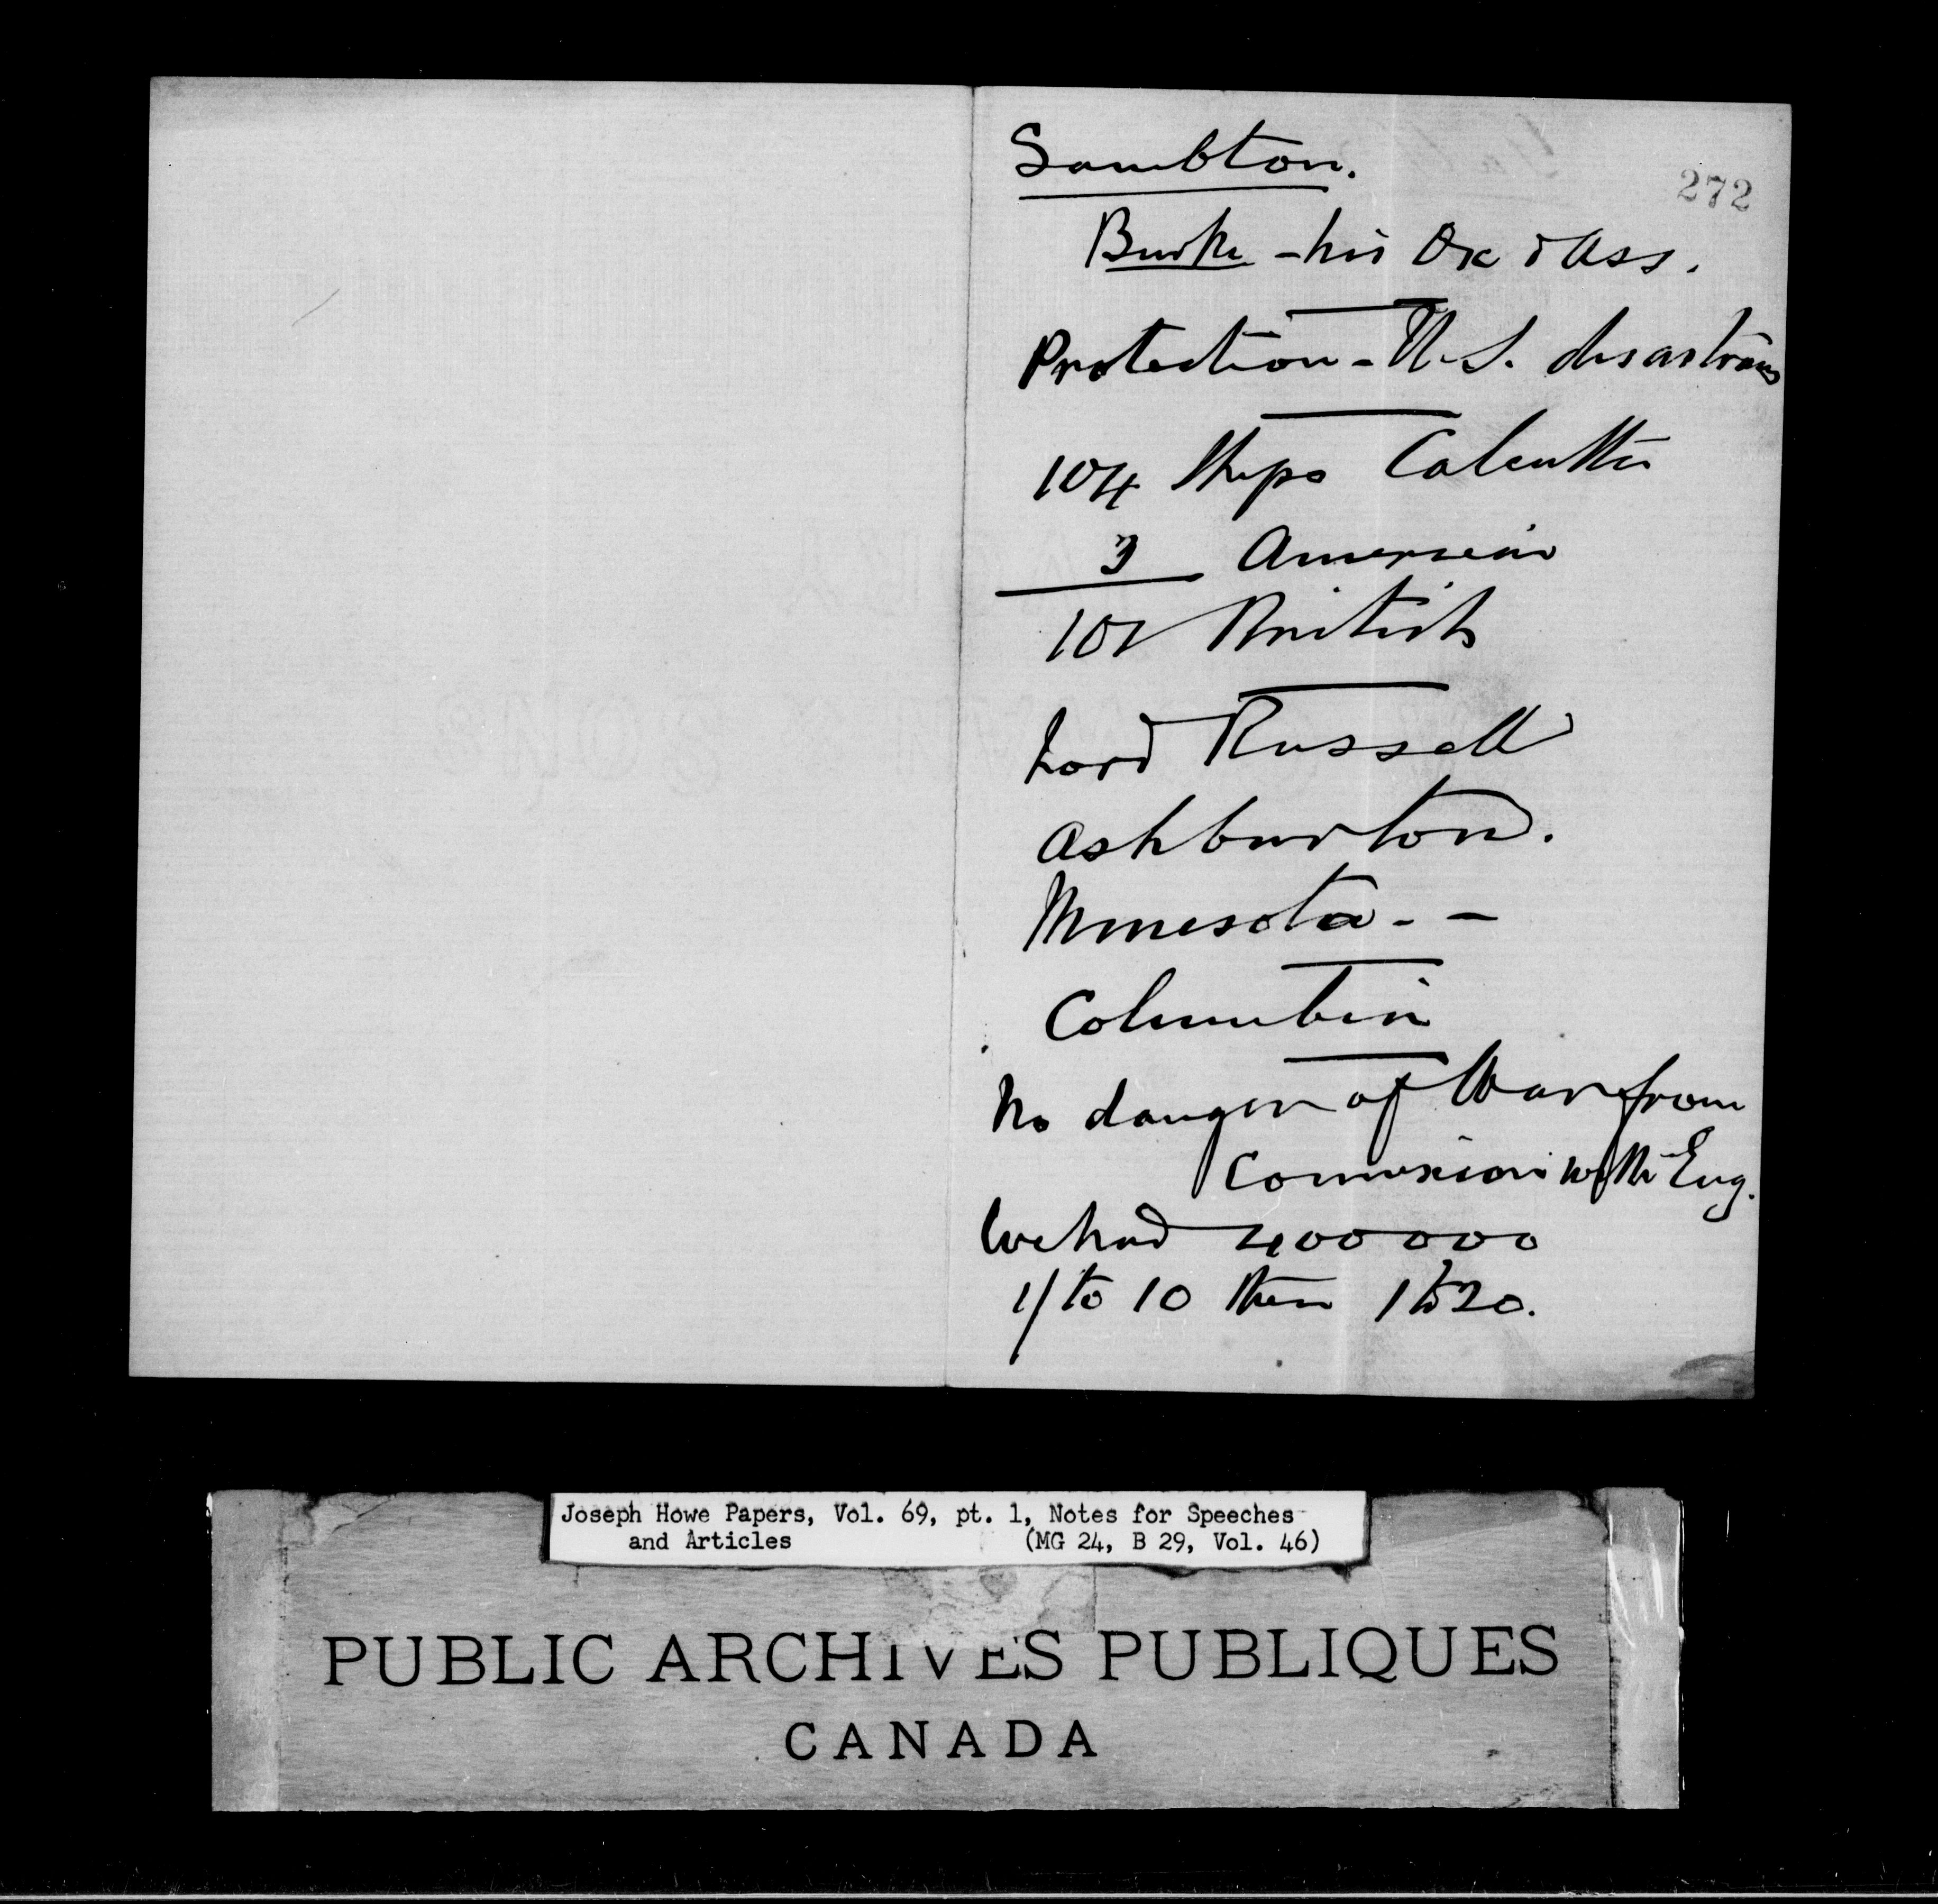 Sambton.
272
Burke - his Ox & Ass.
Protection - U.S. disastrous
104 Ships Calcutta
3 American
101 British
Lord Russell
Ashburton.
Minesota - -
Columbia
No danger of War from
Connexion with Eng.
We had 400000
1/ to 10 then 1 to 20.
Joseph Howe Papers, Vol. 69, pt. 1, Notes for Speeches
and Articles (MG 24, B 29, Vol. 46)
PUBLIC ARCHIVES PUBLIQUES
CANADA